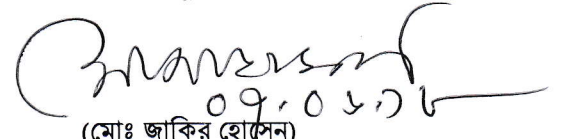 ০৭.০৬.১৮
(মোঃ জাকির হোসেন)